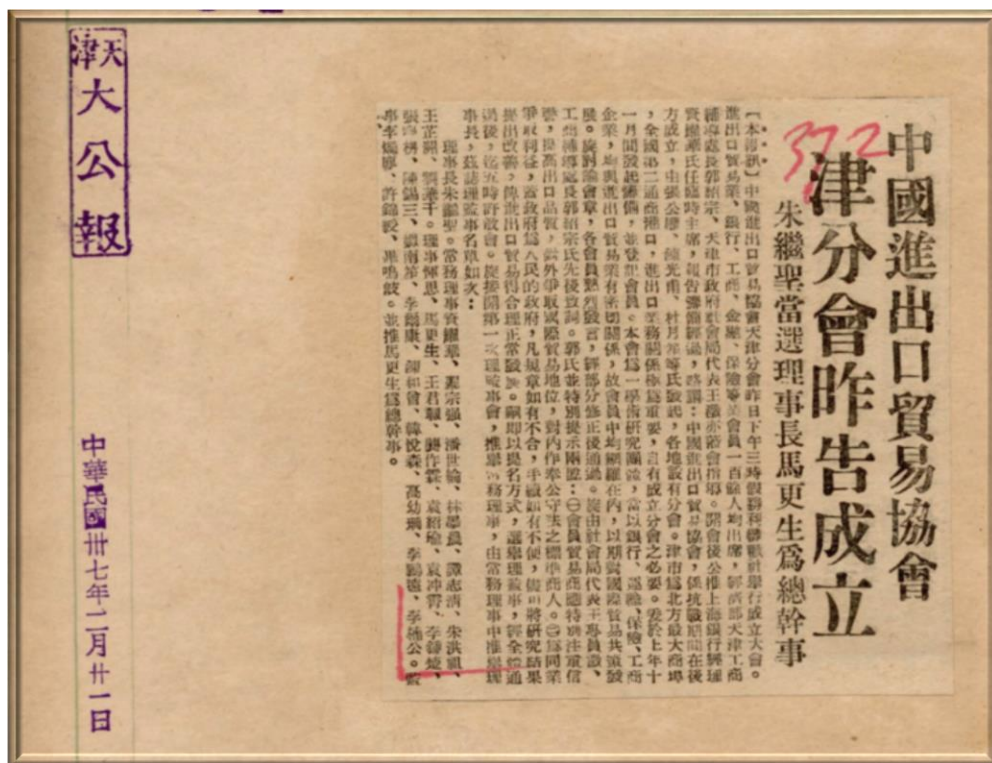 天津
大公報
中華民國卅七年二月廿一日
372
中國進出口貿易協會
津分會昨告成立
朱繼聖當選理事長馬更生爲總幹事
【本報訊】中國進出口貿易協會天津分會昨日下午三時假勝利聯歡社舉行成立大會。
進出口貿易業、銀行、工商、金融、保險等業會員一百餘人均出席，經濟部天津工商
輔導處長郭紹宗、天津市政府社會局代表王激亦蒞會指導。開會後公推上海銀行經理
資耀華氏任臨時主席，報告籌備經過，略謂：中國進出口貿易協會，係抗戰期間在後
方成立，由張公權、陳光甫、杜月笙等氏發起，各地設有分會。津市爲北方最大商埠
，全國第二通商港口，進出口業務關係極爲重要，自有成立分會之必要。爰於上年十
一月間發起籌備，並登記會員。本會爲一學術研究團體，當以銀行、運輸、保險、工商
企業，均與進出口貿易業有密切關係，故會員中均網羅在內，以期對國際貿易共策發
展。旋討論會章，各會員熱烈發言，經部分修正後通過。旋由社會局代表王專員激、
工商輔導處長郭紹宗氏先後致詞。郭氏並特別提示兩點：㊀會員貿易商應特別注重信
譽，提高出口品質，對外爭取國際貿易地位，對內作奉公守法之標準商人。㊁爲同業
爭取利益，蓋政府爲人民的政府，凡規章如有不合，手續如有不便，儘可將研究結果
提出改善，俾進出口貿易得合理正常發展。嗣即以提名方式，選舉理監事，經全體通
過後，迄五時許散會。旋接開第一次理監事會，推舉常務理事，由常務理事中推舉理
事長，茲誌理監事名單如次：
理事長朱繼聖。常務理事資耀華、潘世綸、林學良、譚志清、朱洪祖、
理事惲思、馬更生、王君毅、龔作霖、袁紹瑜、袁沖霄、李
陳錫三、李爾康、韓悅森、高幼珊、監
事李燭塵、許錦毅、畢鳴岐。並推馬更生爲總幹事。